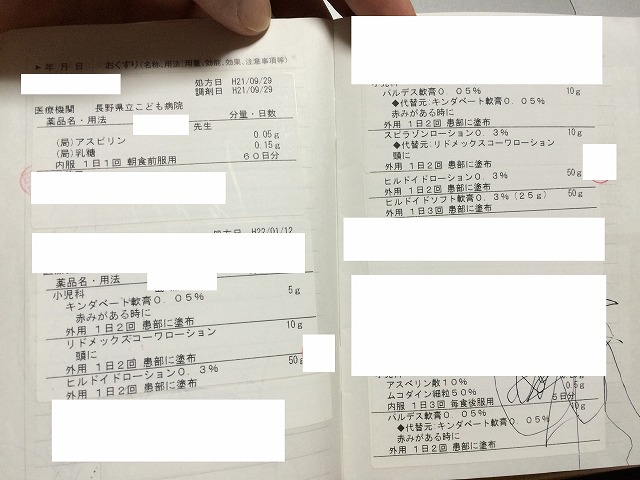 ▶ 年 月 日 おくすり(名称、用法、用量、効能、効果、注意事項等)
処方日 H21/09/29
調剤日 H21/09/29
医療機関 長野県立こども病院
薬品名・用法 分量・日数
先生
(局)アスピリン 0.05g
(局)乳糖 0.15g
内服 1日1回 朝食前服用 60日分
処方日 H22/01/12
薬品名・用法
小児科
キンダベート軟膏0.05% 5g
赤みがある時に
外用 1日2回 患部に塗布
リドメックスコーワローション 10g
頭に
外用 1日2回 患部に塗布
ヒルドイドローション0.3% 50g
外用 1日2回 患部に塗布
小児科
パルデス軟膏0.05% 10g
◆代替元:キンダベート軟膏0.05%
赤みがある時に
外用 1日2回 患部に塗布
スピラゾンローション0.3% 10g
◆代替元:リドメックスコーワローション
頭に
外用 1日2回 患部に塗布
ヒルドイドローション0.3% 50g
外用 1日2回 患部に塗布
ヒルドイドソフト軟膏0.3%(25g) 50g
外用 1日3回 患部に塗布
アスベリン散10%
ムコダイン細粒50% 0.5g
内服 1日3回 毎食後服用 5日分
パルデス軟膏0.05%
◆代替元:キンダベート軟膏0.05%
赤みがある時に
外用 1日2回 患部に塗布